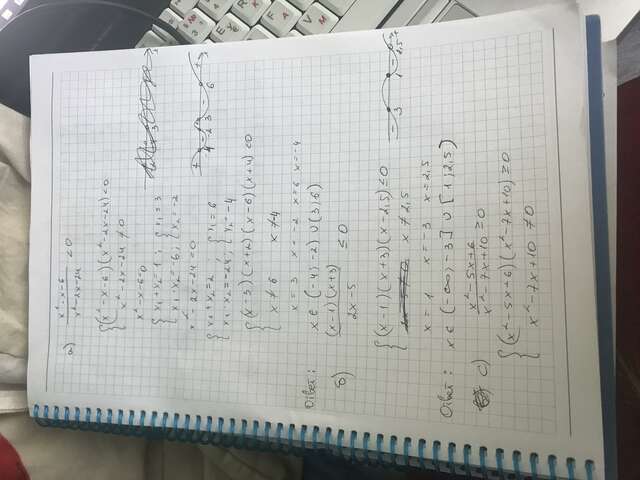 а) x²-x-6 / x²-2x-24 < 0
{ (x²-x-6)(x²-2x-24) < 0
x²-2x-24 ≠ 0
x²-x-6=0
{ x₁+x₂=1 ; { x₁=3
x₁·x₂=-6; { x₂=-2
x²-2x-24=0
{ x₁+x₂=2 ; { x₁=6
x₁·x₂=-24; { x₂=-4
{ (x-3)(x+2)(x-6)(x+4)<0
x≠6 x≠4
x=3 x=-2 x=6 x=-4
Ответ: x∈(-4;-2)∪(3;6)
б) (x-1)(x+3) / 2x-5 ≤ 0
{ (x-1)(x+3)(x-2,5)≤0
x≠2,5
x=1 x=-3 x=2,5
Ответ: x∈(-∞;-3]∪[1;2,5)
c) x²-5x+6 / x²-7x+10 ≥ 0
{ (x²-5x+6)(x²-7x+10)≥0
x²-7x+10 ≠ 0